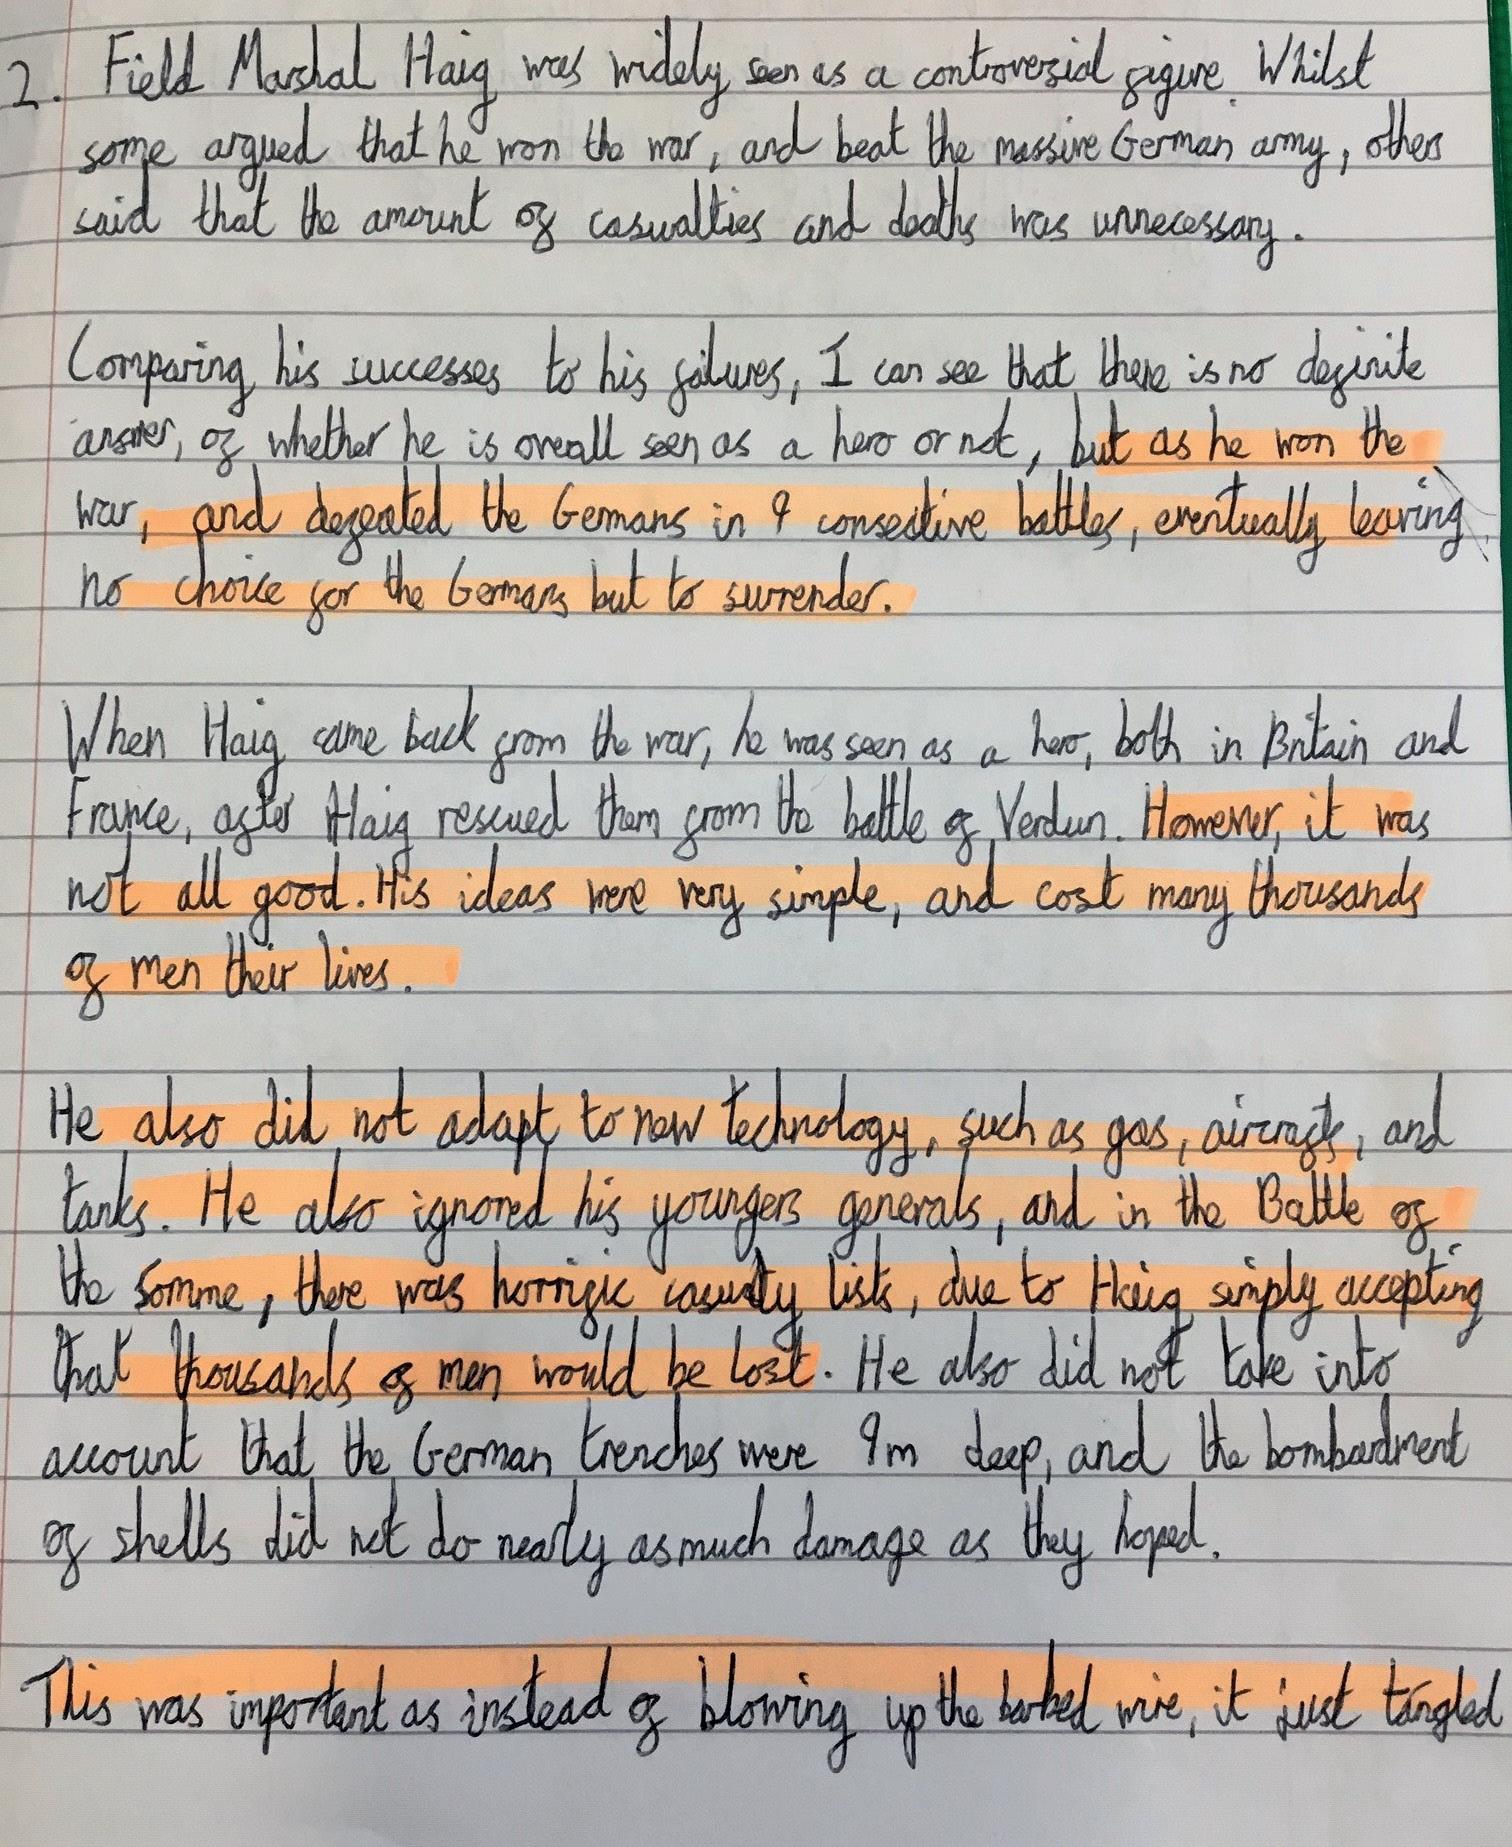 2. Field Marshal Haig was widely seen as a controversial figure. Whilst
some argued that he won the war, and beat the massive German army, others
said that the amount of casualties and deaths was unnecessary.
Comparing his successes to his failures, I can see that there is no definite
answer, of whether he is overall seen as a hero or not, but as he won the
war, and defeated the Germans in 9 consective battles, eventually leaving
no choice for the Germans but to surrender.
When Haig came back from the war, he was seen as a hero, both in Britain and
France, after Haig rescued them from the battle of Verdun. However, it was
not all good. His ideas were very simple, and cost many thousands
of men their lives.
He also did not adapt to new technology, such as gas, aircrafts, and
tanks. He also ignored his youngers generals, and in the Battle of
the Somme, there was horrific casualty lists, due to Haig simply accepting
that thousands of men would be lost. He also did not take into
account that the German trenches were 9m deep, and the bombardment
of shells did not do nearly as much damage as they hoped.
This was important as instead of blowing up the barbed wire, it just tangled